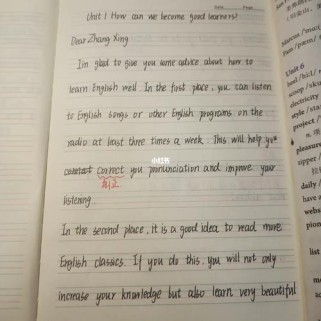 Unit 1 How can we become good learners?
Dear Zhang Xing
I'm glad to give you some advice about how to
learn English well. In the first place, you can listen
to English songs or other English programs on the
radio at least three times a week. This will help you
correct you pronunciation and improve your
纠正
listening.
In the second place, it is a good idea to read more
English classics. If you do this, you will not only
increase your knowledge but also learn very beautiful
小红书
Unit 6
electricity
style /stai
project /
pleasure
zipper /
daily
have a
website
pioneer
list